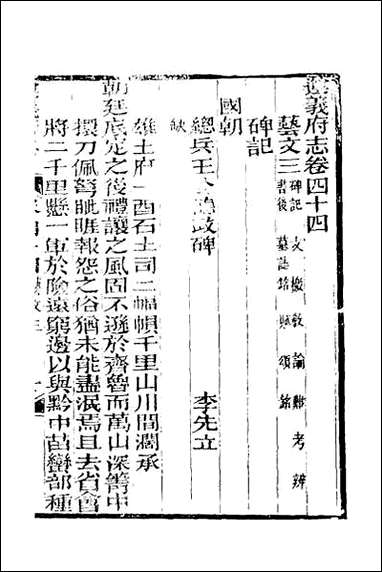 遵義府志卷四十四
藝文三 碑記 文 檄 教 論 辯 考 辨
書後 墓誌銘 賦 頌 銘
碑記
國朝
總兵王公德政碑 李先立
缺
維土府一酉石土司二幅幀千里山川間濶承
朝廷底定之後禮讓之風固不遜於齊魯而萬山深箐中
擐刀佩弩睚眦報怨之俗猶未能盡泯焉且去省會
將二千里懸一軍於險遠窮邊以與黔中苗蠻部種